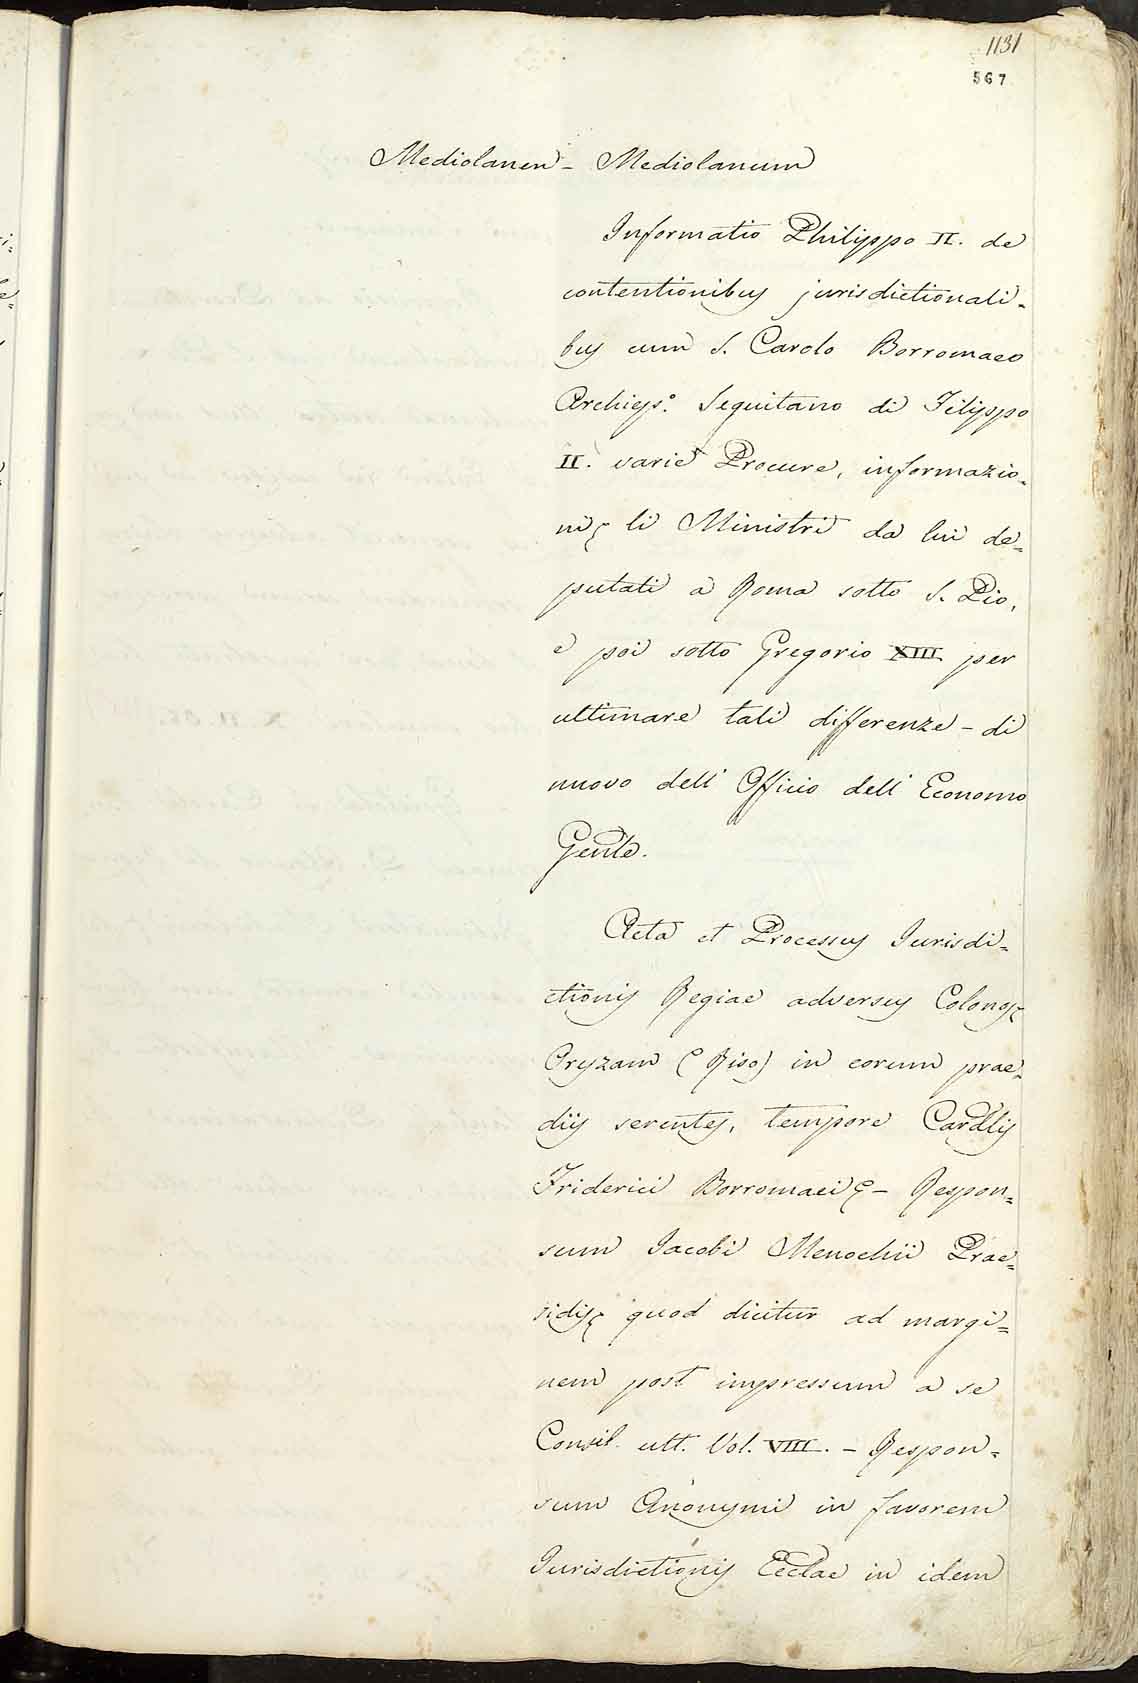 1131
567
Mediolanen - Mediolanum
Informatio Philippo II. de
contentionibus jurisdictionali=
bus cum S. Carolo Borromaeo
Archieps.° Seguitano di Filippo
II. varie Procure, informazio=
ni, li Ministri da lui de=
putati a Roma sotto S. Pio,
e poi sotto Gregorio XIII per
ultimare tali differenze - di
nuovo dell' Officio dell' Economo
Genle.
Acta et Processus Jurisdi=
ctionis Regiae adversus Colonos,
Oryzam (Riso) in eorum prae=
diis serentes, tempore Cardlis
Friderici Borromaei, - Respon=
sum Jacobi Menochii Prae=
sidis, quod dicitur ad margi=
nem post impressum a se
Consil. ult. Vol. VIII. - Respon=
sum Anonymi in favorem
Jurisdictionis Ecclae in idem